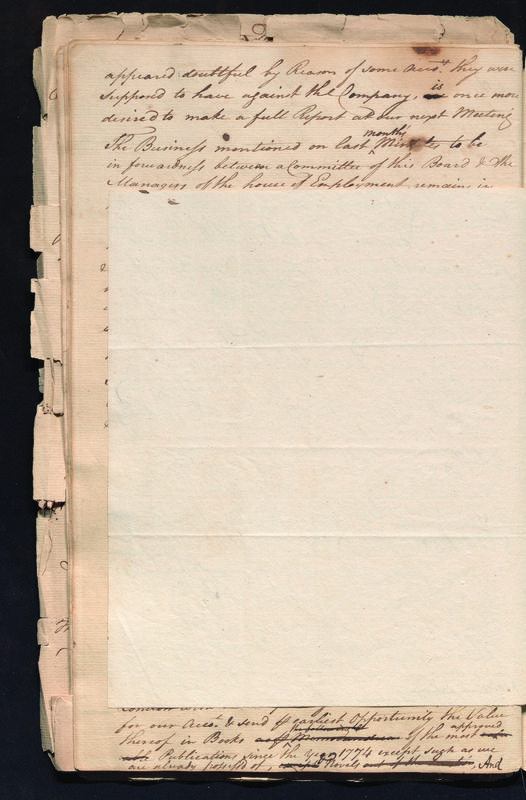 appeared doubtful by Reason of some Acco.ts they were
supposed to have against the Company, is once more
desired to make a full Report at our next Meeting
The Business mentioned on last months Minutes to be
in forwardness between a Committee of this Board & the
Managers of the house of Employment remains in
for our Acco.t & send earliest Opportunity the Value
thereof in Books of the most approved
Publications since the Year 1774 except such as we
are already possess'd of, Novels , And